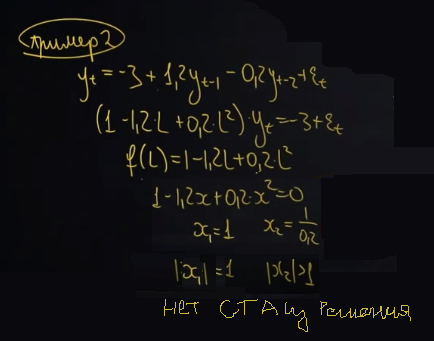 пример 2
y_t = -3 + 1,2y_{t-1} - 0,2y_{t-2} + ε_t
(1 - 1,2·L + 0,2·L²)·y_t = -3 + ε_t
f(L) = 1 - 1,2L + 0,2·L²
1 - 1,2x + 0,2·x² = 0
x₁ = 1 x₂ = 1/0,2
|x₁| = 1 |x₂| > 1
НЕТ СТАЦ РЕШЕНИЯ